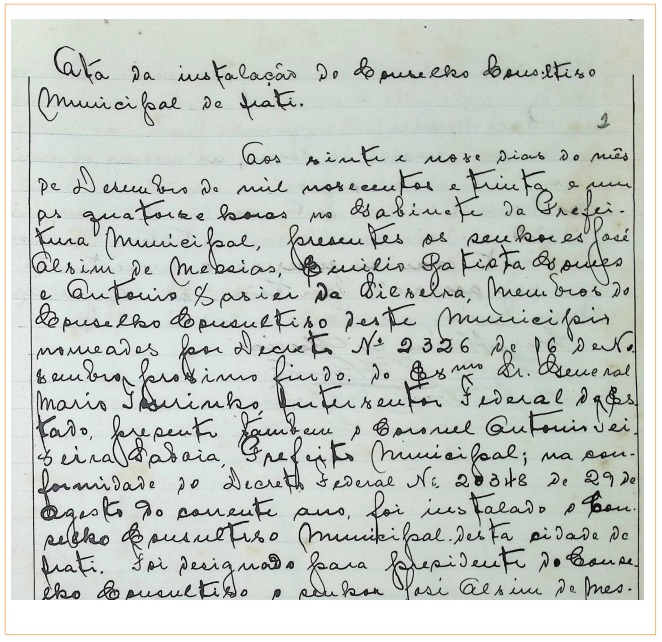 Acta da instalação do Conselho Consultivo
Municipal de Irati.
2
Aos vinte e nove dias do mês
de Desembro de mil novecentos e trinta e um
as quatorze horas no Gabinete da Prefei-
tura Municipal, presentes os senhores José
Alvim de Messias, Emilio Batista Gomes
e Antonio Xavier da Silveira, Membros do
Conselho Consultivo deste Municipio
nomeados por Decreto Nº 2326 de 16 de No-
vembro, proximo findo, do Exmo Sr. General
Mario Tourinho, Interventor Federal do Es-
tado, presente támbem o Coronel Antonio Tei-
xeira Saboia, Prefeito Municipal; na con-
formidade do Decreto Federal Nº 20348 de 29 de
Agosto do corrente ano, foi instalado o Con-
selho Consultivo Municipal desta cidade de
Irati. Foi designado para presidente do Conse-
lho Consultivo o senhor José Alvim de Mes-